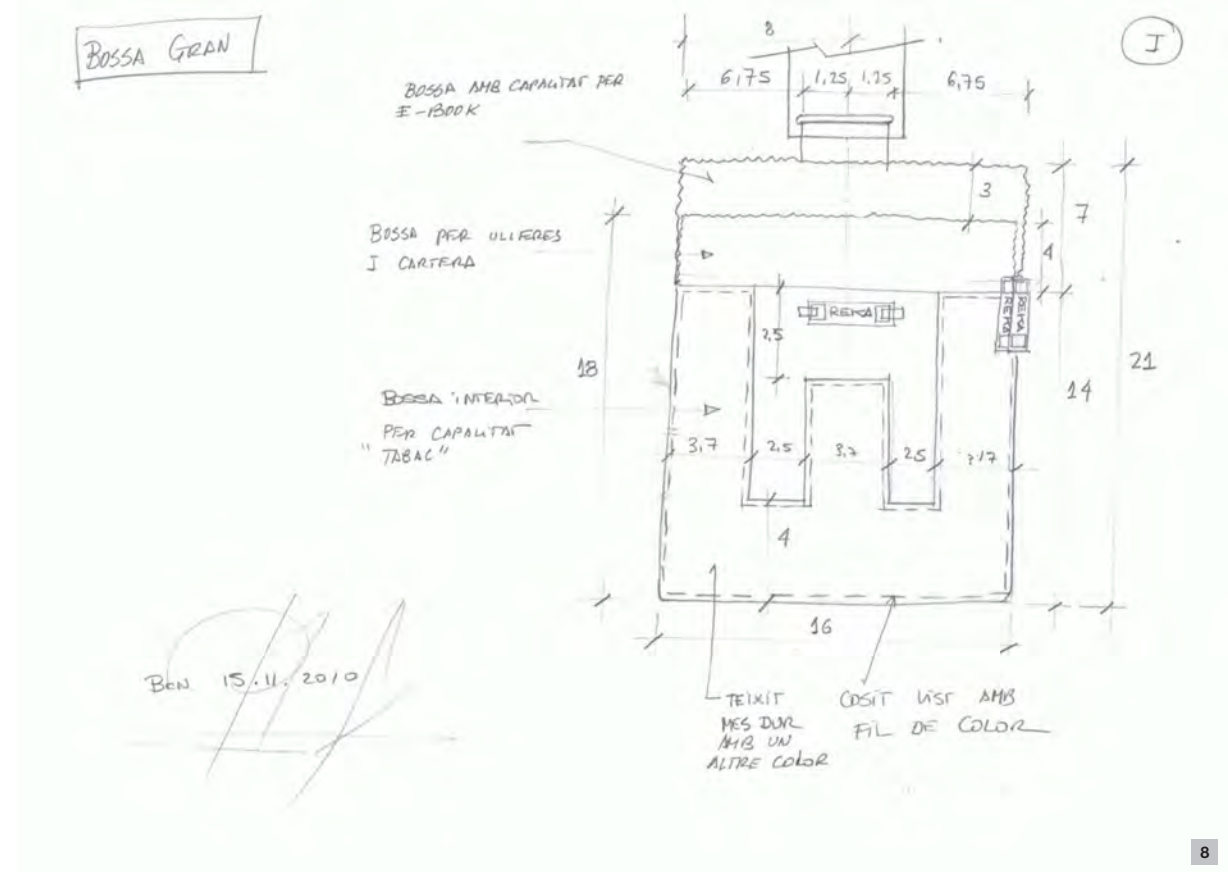 BOSSA GRAN
I
8
6,75 1,25 1,25 6,75
BOSSA AMB CAPACITAT PER
E-BOOK
3
7
BOSSA PER ULLERES
I CARTERA
4
REMA
REMA
REMA
2,5
18
21
14
BOSSA INTERIOR
PER CAPACITAT
"TABAC"
3,7 2,5 3,7 2,5
4
16
BCN 15.11.2010
TEIXIT
MES DUR
AMB UN
ALTRE COLOR
COSIT VIST AMB
FIL DE COLOR
8